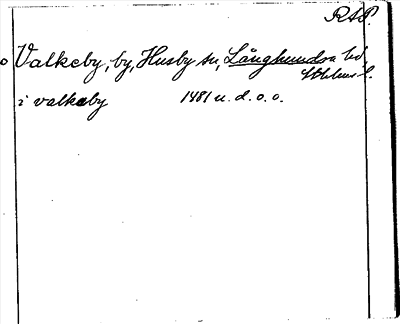 RAP.
Valkeby, by, Husby sn, Långhundra hd,
Sthlms l.
i valkeby 1481 u. d. o. o.